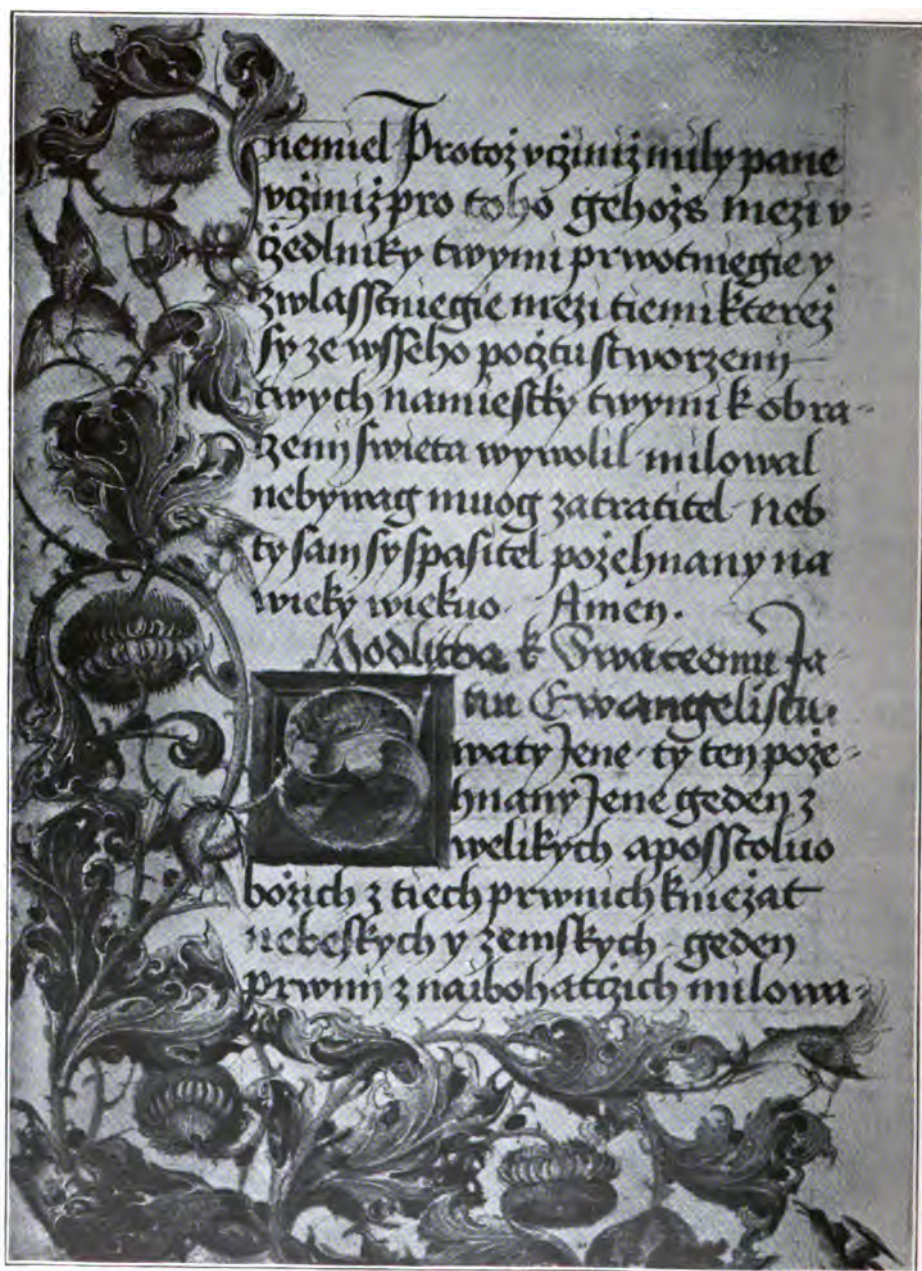 nemiel Protoż vcżiniż mily pane
vcżiniż pro toho gehożs mezi v-
żedlniky twymi prwotniegie y
zwlasstniegie mezi tiemi kterez
sy ze wsseho pocżtu stworzenij
twych namiestky twymi k obra-
zenij swieta wywolil milowal
nebywag muog zatratitel neb
ty sam sy spasitel pożehnany na
wieky wiekuo. Amen.
Modlitba k Swateemu Ja-
nu Ewangelistu.
Swaty Jene ty ten poże-
hnany Jene geden z
welikych aposstoluo
bożich z tiech prwnich kniezat
nebeskych y zemskych geden
prwnij z naibohatcżich milowa-